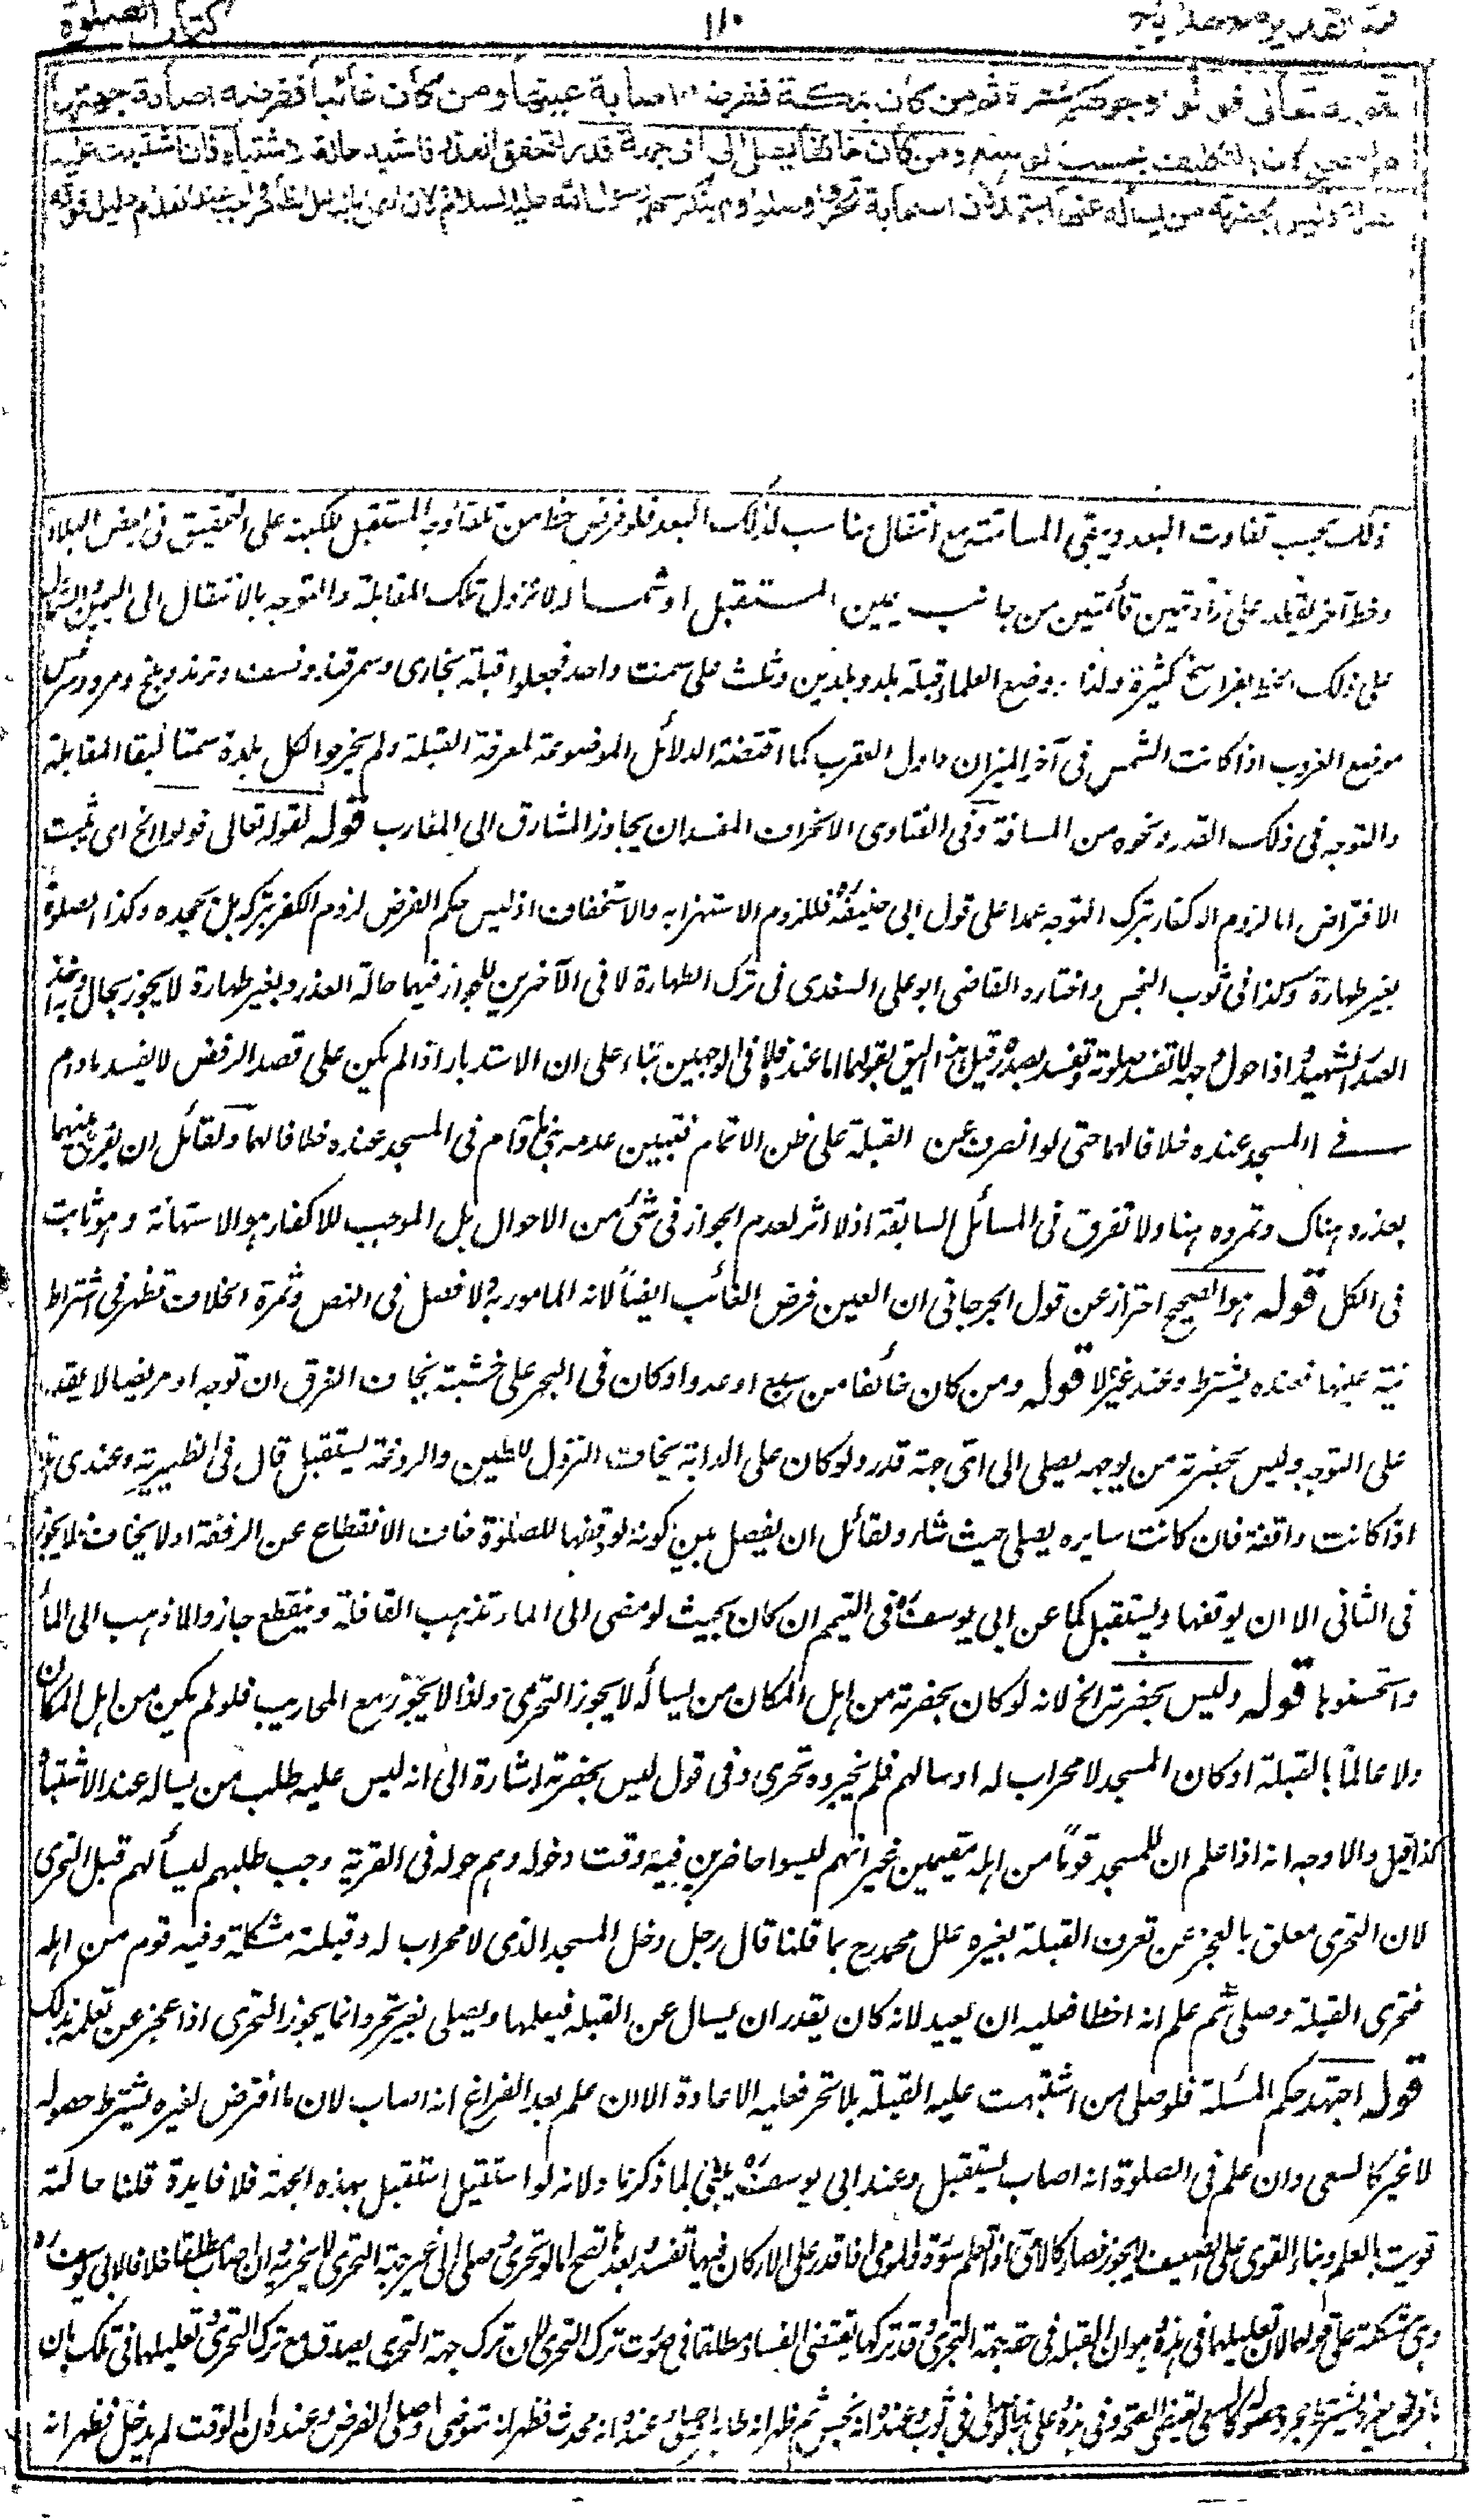 فتح القدير مع هداية ١١٠ كتاب الصلوة
لقوله تعالى فولوا وجوهكم شطره ثم من كان بمكة ففرضه اصابة عينها ومن كان غائبا ففرضه اصابة جهتها
هو الصحيح لان التكليف بحسب الوسع ومن كان خائفا يصلى الى اى جهة قدر لتحقق العذر فاشبه حالة الاشتباه فان اشتبهت عليه
القبلة وليس بحضرته من يسأله عنها اجتهد لان الصحابة تحروا وصلوا ولم ينكر عليهم رسول الله عليه السلام ولان العمل بالدليل الظاهر واجب عند انعدام دليل فوقه
ذلك بحسب تفاوت البعد ويبقى المسامتة مع انتقال مناسب لذلك البعد فلو فرض خط من تلقاء وجه المستقبل للكعبة على التحقيق فى بعض البلاد
وخط آخر يقطعه على زاويتين قائمتين من جانب يمين المستقبل او شماله لا تزول تلك المقابلة والتوجه بالانتقال الى اليمين والشمال
على ذلك الخط بفراسخ كثيرة ولذا وضع العلماء قبلة بلد وبلدين وثلث على سمت واحد فجعلوا قبلة بخارى وسمرقند ونسف وترمذ وبلخ ومرو وسرخس
موضع الغروب اذا كانت الشمس فى آخر الميزان واول العقرب كما اقتضته الدلائل الموضوعة لمعرفة القبلة ولم يخرجوا لكل بلدة سمتا لبقاء المقابلة
والتوجه فى ذلك القدر ونحوه من المسافة وفى الفتاوى الانحراف المفسد ان يجاوز المشارق الى المغارب قوله لقوله تعالى فولوا الخ اى ثبت
الافتراض اما لزوم الاكفار بترك التوجه عمدا على قول ابى حنيفة فللزوم الاستهزاء به والاستخفاف اذ ليس حكم الفرض لزوم الكفر بتركه بل بجحده وكذا الصلوة
بغير طهارة وكذا فى ثوب النجس واختاره القاضى ابو على السغدى فى ترك الطهارة لا فى الآخرين للجواز فيهما حالة العذر وبغير طهارة لا يجوز بحال وبه اخذ
الصدر الشهيد واذا حول وجهه لا تفسد صلوته وتفسد بصدره قيل هذا اليق بقولهما اما عنده فلا فى الوجهين بناء على ان الاستدبار اذا لم يكن على قصد الرفض لا يفسد مادام
فى المسجد عنده خلافا لهما حتى لو انصرف عن القبلة على ظن الاتمام فتبين عدمه بنى مادام فى المسجد عنده خلافا لهما ولقائل ان يفرق بينهما
بعذره هناك وتمرده هنا ولا تفرق فى المسائل السابقة اذ لا اثر لعدم الجواز فى شئ من الاحوال بل الموجب للاكفار هو الاستهانة وهو ثابت
فى الكل قوله هو الصحيح احتراز عن قول الجرجانى ان العين فرض الغائب ايضا لانه المامور به ولا فصل فى النص وثمرة الخلاف تظهر فى اشتراط
نية عينها فعنده يشترط وعند غيره لا قوله ومن كان خائفا من سبع او عدو او كان فى البحر على خشبة يخاف الغرق ان توجه او مريضا لا يقدر
على التوجه وليس بحضرته من يوجهه يصلى الى اى جهة قدر ولو كان على الدابة يخاف النزول للطين والردغة يستقبل قال فى الظهيرية وعندى هذا
اذا كانت واقفة فان كانت سايره يصلى حيث شاء ولقائل ان يفصل بين كونه لو وقفها للصلوة خاف الانقطاع عن الرفقة اولا يخاف فلا يجوز
فى الثانى الا ان يوقفها ويستقبل كما عن ابى يوسف فى التيمم ان كان بحيث لو مضى الى الماء تذهب القافلة وينقطع جاز والا ذهب الى الماء
واستحسنوها قوله وليس بحضرته الخ لانه لو كان بحضرته من اهل المكان من يسأله لا يجوز التحرى ولذا لا يجوز مع المحاريب فلو لم يكن من اهل المكان
ولا عالما بالقبلة او كان المسجد لا محراب له او سالهم فلم يخبروه تحرى وفى قول ليس بحضرته اشارة الى انه ليس عليه طلب من يساله عند الاشتباه
كذا قيل والاوجه انه اذا علم ان للمسجد قوما من اهله مقيمين غير انهم ليسوا حاضرين فيه وقت دخوله وهم حوله فى القرية وجب طلبهم ليسألهم قبل التحرى
لان التحرى معلق بالعجز عن تعرف القبلة بغيره علل محمد رح بما قلنا قال رجل دخل المسجد الذى لا محراب له وقبلته مشكلة وفيه قوم من اهله
فتحرى القبلة وصلى ثم علم انه اخطا فعليه ان يعيد لانه كان يقدر ان يسال عن القبله فيعلمها ويصلى بغير تحر وانما يجوز التحرى اذا عجز عن تعلمه بذلك
قوله اجتهد حكم المسئلة فلو صلى من اشتبهت عليه القبلة بلا تحر فعليه الاعادة الا ان علم بعد الفراغ انه اصاب لان ما افترض لغيره يشترط حصوله
لا غير كالسعى وان علم فى الصلوة انه اصاب يستقبل وعند ابى يوسف يبنى لما ذكرنا ولانه لو استقبل استقبل بهذه الجهة فلا فايدة قلنا حالته
قويت بالعلم وبناء القوى على الضعيف لا يجوز فصار كالامى اذا تعلم سورة والمومى اذا قدر على الاركان فيها تفسد وبعدها تصح اما لو تحرى وصلى الى غير جهة التحرى لا يجزيه وان اصاب مطلقا خلافا لابى يوسف
وهى مشكلة على قولهما لان تعليلهما فى هذه وهو ان القبلة فى حقه جهة التحرى وقد تركها يقتضى الفساد مطلقا فى صورت ترك التحرى لان ترك جهة التحرى يصدق مع ترك التحرى وتعليلهما فى تلك بان
ما فرض لغيره يشترط مجرد حصوله كالسعى يقتضى الصحة فى هذه وعلى هذا لو صلى فى ثوب وعنده انه نجس ثم ظهر انه طاهر او صلى وعنده انه محدث فظهر انه متوضى او صلى الفرض وعنده ان الوقت لم يدخل فظهر انه